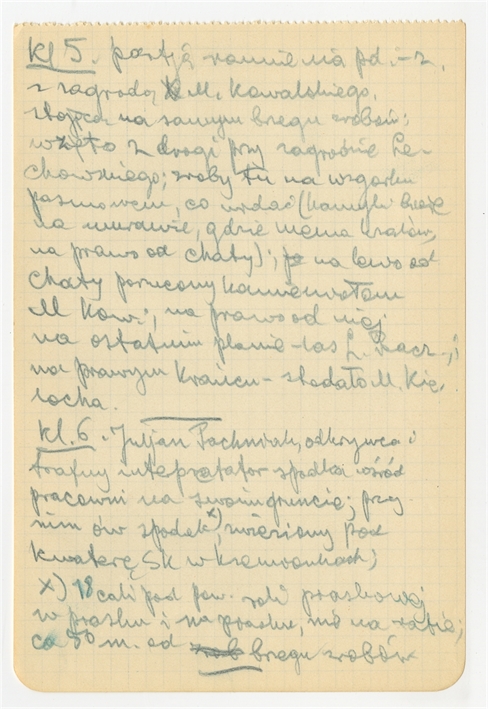 kl 5. partja równie na pd i-z.
z zagrodą M. Kowalskiego,
stojącą na samym brzegu zrobów;
wzięto z drogi przy zagrodzie Le-
chowskiego; zroby tu na wzgórku
pasmowem, co widać (kamyki
na murawie, gdzie niema kratów,
na prawo od chaty); na lewo od
chaty porzucony kamieniołom
M Kow.; na prawo od niej
na ostatnim planie - las L. ;
na prawym krańcu - stodoła M. Kie
locha.
kl. 6. Juljan Pachniak, odkrywca i
trafny interpretator spodka wśród
pracowni na swoim gruncie; przy
nim ów spodek x), zwieziony pod
kwaterę SK w Krzemionkach;
x) 18 cali pod pow. roli piaskowej
w piasku i na piasku, nie na rabie;
ca 80 m. od brzegu zrobów